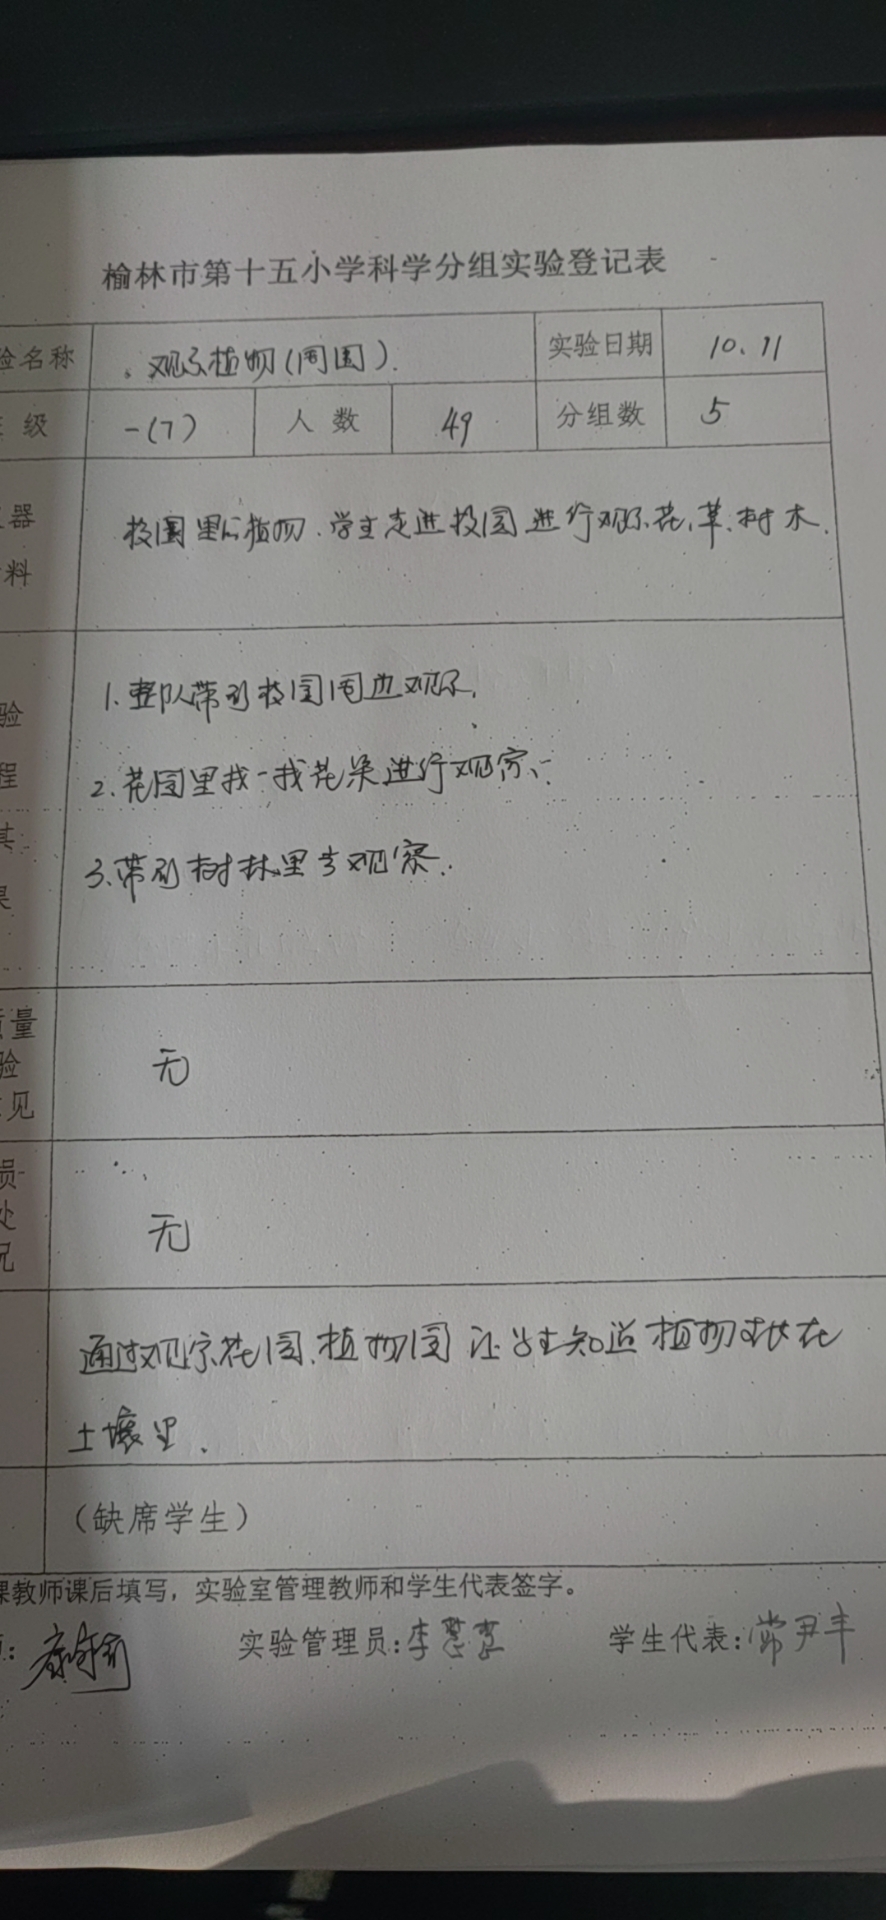 榆林市第十五小学科学分组实验登记表
验名称 观察植物(周围). 实验日期 10.11
级 一(7) 人数 49 分组数 5
器
料
校园里的植物.学生走进校园进行观察花、草.树木.
验
程
其
果
1.整队带到校园周边观察.
2.花园里找一找花朵进行观察.
3.带到树林里去观察.
质量
验
见
无
损
处
况
无
通过观察花园.植物园让学生知道植物生长在
土壤里.
(缺席学生)
课教师课后填写，实验室管理教师和学生代表签字。
实验管理员:李慧慧 学生代表:常尹丰